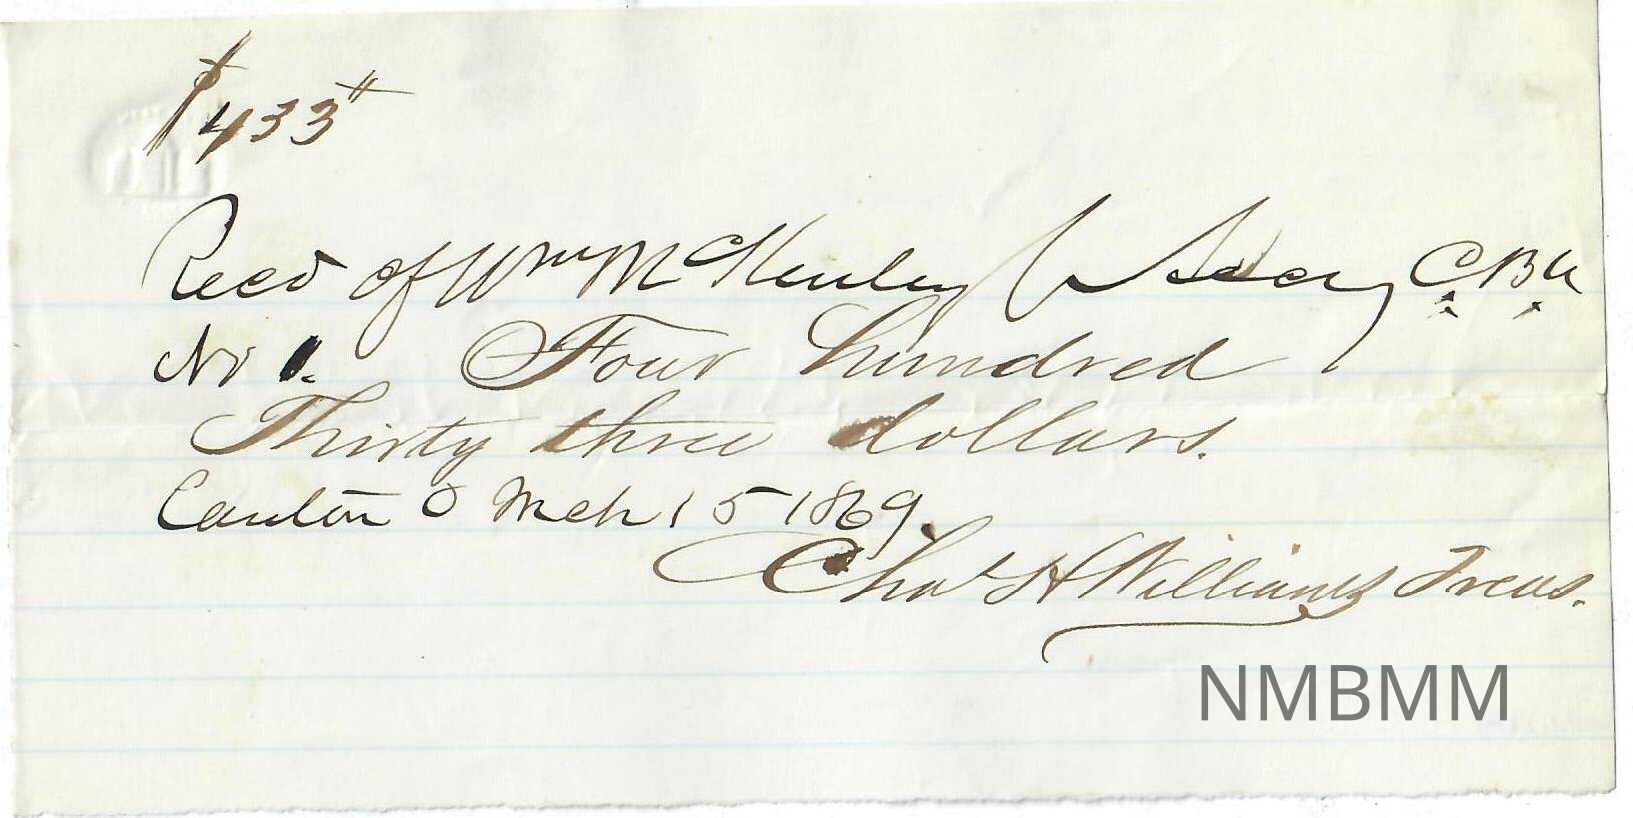 $433
Recd of Wm McKinley Secy C.B.A.
No 1. Four hundred
Thirty three dollars.
Canton O Mch 15 1869.
Chas H Williams Treas.
NMBMM